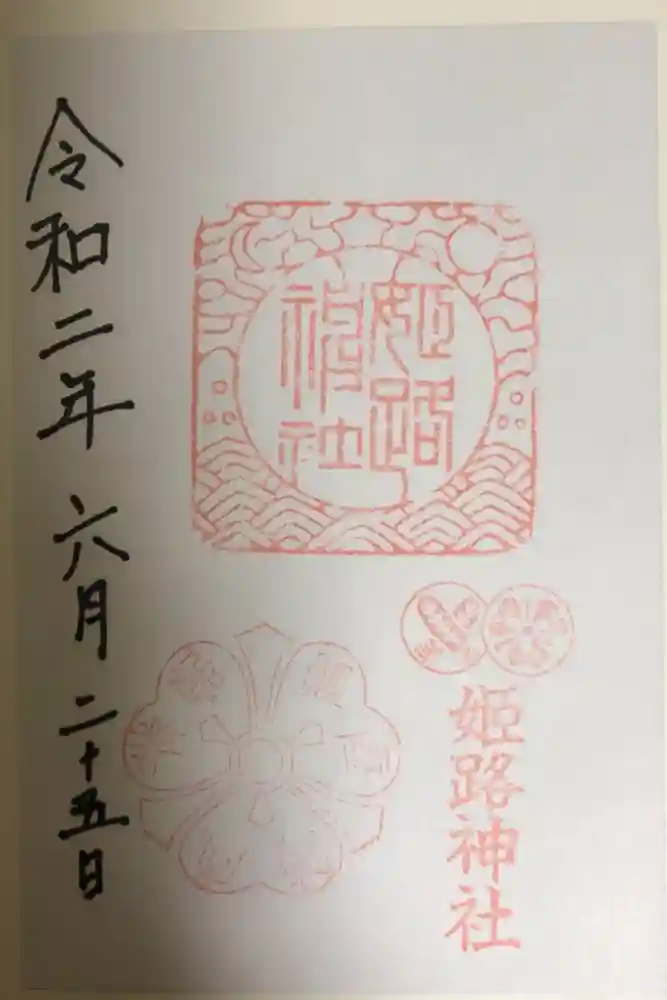 姫路
神社
姫路神社
令和二年六月二十五日